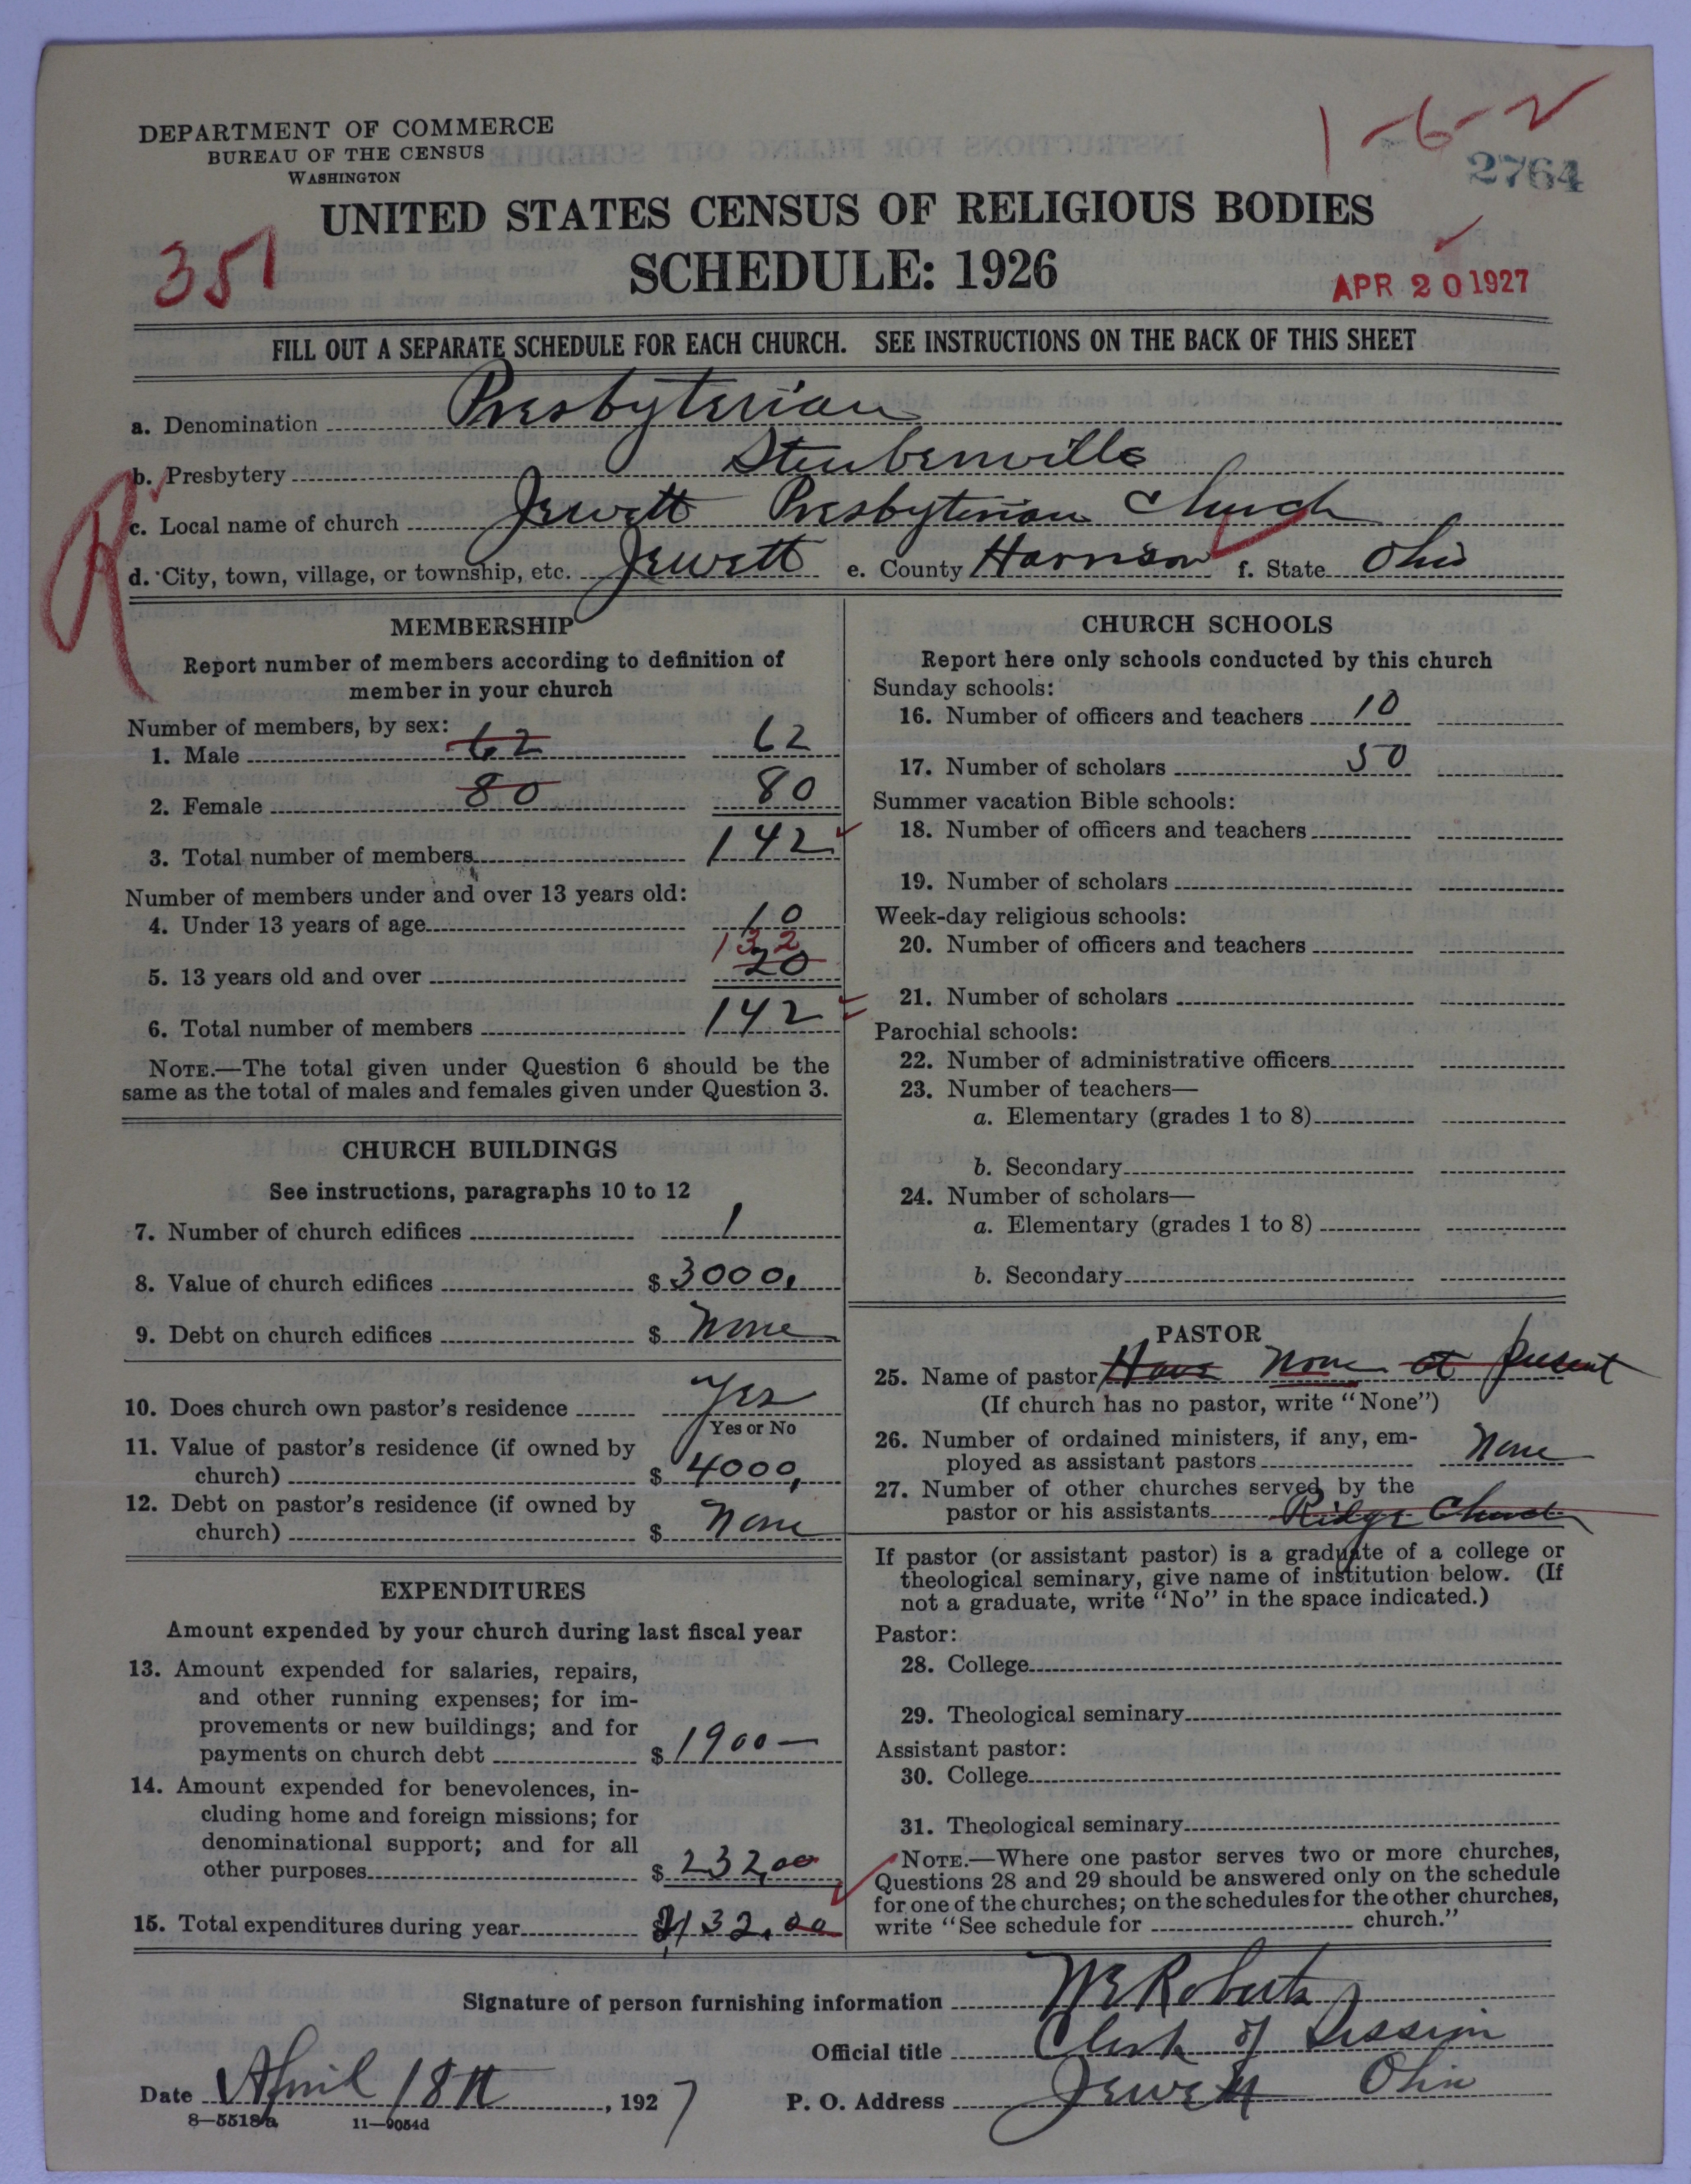 1-6-2
2764
DEPARTMENT OF COMMERCE
BUREAU OF THE CENSUS
WASHINGTON
UNITED STATES CENSUS OF RELIGIOUS BODIES
351
SCHEDULE: 1926
APR 20 1927
FILL OUT A SEPARATE SCHEDULE FOR EACH CHURCH. SEE INSTRUCTIONS ON THE BACK OF THIS SHEET
a. Denomination Presbyterian
b. Presbytery Steubenville
R
c. Local name of church Jewett Presbyterian Church
d. City, town, village, or township, etc. Jewett e. County Harrison f. State Ohio
MEMBERSHIP
Report number of members according to definition of
member in your church
Number of members, by sex:
1. Male 62 62
2. Female 80 80
3. Total number of members 142
Number of members under and over 13 years old:
4. Under 13 years of age 10
132
5. 13 years old and over 20
6. Total number of members 142
NOTE.—The total given under Question 6 should be the
same as the total of males and females given under Question 3.
CHURCH BUILDINGS
See instructions, paragraphs 10 to 12
7. Number of church edifices 1
8. Value of church edifices $ 3000.
9. Debt on church edifices $ None
10. Does church own pastor's residence Yes
Yes or No
11. Value of pastor's residence (if owned by
church) $ 4000,
12. Debt on pastor's residence (if owned by
church) $ None
EXPENDITURES
Amount expended by your church during last fiscal year
13. Amount expended for salaries, repairs,
and other running expenses; for im-
provements or new buildings; and for
payments on church debt $ 1900—
14. Amount expended for benevolences, in-
cluding home and foreign missions; for
denominational support; and for all
other purposes $ 232,00
15. Total expenditures during year $ 2132.00
CHURCH SCHOOLS
Report here only schools conducted by this church
Sunday schools:
16. Number of officers and teachers 10
17. Number of scholars 50
Summer vacation Bible schools:
18. Number of officers and teachers
19. Number of scholars
Week-day religious schools:
20. Number of officers and teachers
21. Number of scholars
Parochial schools:
22. Number of administrative officers
23. Number of teachers—
a. Elementary (grades 1 to 8)
b. Secondary
24. Number of scholars—
a. Elementary (grades 1 to 8)
b. Secondary
PASTOR
25. Name of pastor Have None at present
(If church has no pastor, write "None")
26. Number of ordained ministers, if any, em-
ployed as assistant pastors None
27. Number of other churches served by the
pastor or his assistants Ridge Church
If pastor (or assistant pastor) is a graduate of a college or
theological seminary, give name of institution below. (If
not a graduate, write "No" in the space indicated.)
Pastor:
28. College
29. Theological seminary
Assistant pastor:
30. College
31. Theological seminary
NOTE.—Where one pastor serves two or more churches,
Questions 28 and 29 should be answered only on the schedule
for one of the churches; on the schedules for the other churches,
write "See schedule for church."
Signature of person furnishing information W E Roberts
Official title Clerk of Session
Date April 18th, 1927 P. O. Address Jewett Ohio
8—5518a 11—9054d